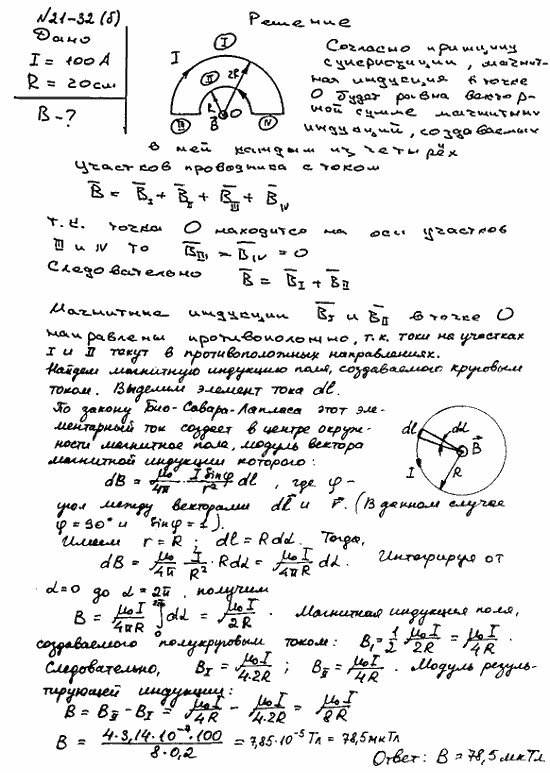 N21-32 (б)
Решение
Дано
I = 100 А
R = 20 см
B - ?
I
I
II
2R
R
O
B̅
III
IV
Согласно принципу
суперпозиции, магнит-
ная индукция в точке
O будет равна вектор-
ной сумме магнитных
индукций, создаваемых
в ней каждым из четырёх
участков проводника с током
B̅ = B̅_I + B̅_II + B̅_III + B̅_IV
т.к. точка O находится на оси участков
III и IV то B̅_III = B̅_IV = 0
Следовательно B̅ = B̅_I + B̅_II
Магнитные индукции B̅_I и B̅_II в точке O
направлены противоположно, т.к. токи на участках
I и II текут в противоположных направлениях.
Найдем магнитную индукцию поля, создаваемого круговым
током. Выделим элемент тока dl.
По закону Био-Савара-Лапласа этот эле-
ментарный ток создает в центре окруж-
ности магнитное поле, модуль вектора
магнитной индукции которого:
dl
dα
B⃗
I
R
dB = μ₀/4π · I sinφ/r² dl, где φ -
угол между векторами dl⃗ и r⃗. (В данном случае
φ = 90° и sinφ = 1).
Имеем r = R; dl = R dα. Тогда,
dB = μ₀/4π · I/R² · R dα = μ₀I/4πR dα. Интегрируя от
α=0 до α = 2π, получим
B = μ₀I/4πR ∫₀^2π dα = μ₀I/2R. Магнитная индукция поля,
создаваемого полукруговым током: B₁ = 1/2 μ₀I/2R = μ₀I/4R.
Следовательно, B_I = μ₀I/4·2R; B_II = μ₀I/4R. Модуль резуль-
тирующей индукции:
B = B_II - B_I = μ₀I/4R - μ₀I/4·2R = μ₀I/8R
B = 4·3,14·10⁻⁷·100/8·0,2 = 7,85·10⁻⁵ Тл = 78,5 мкТл
Ответ: B = 78,5 мкТл